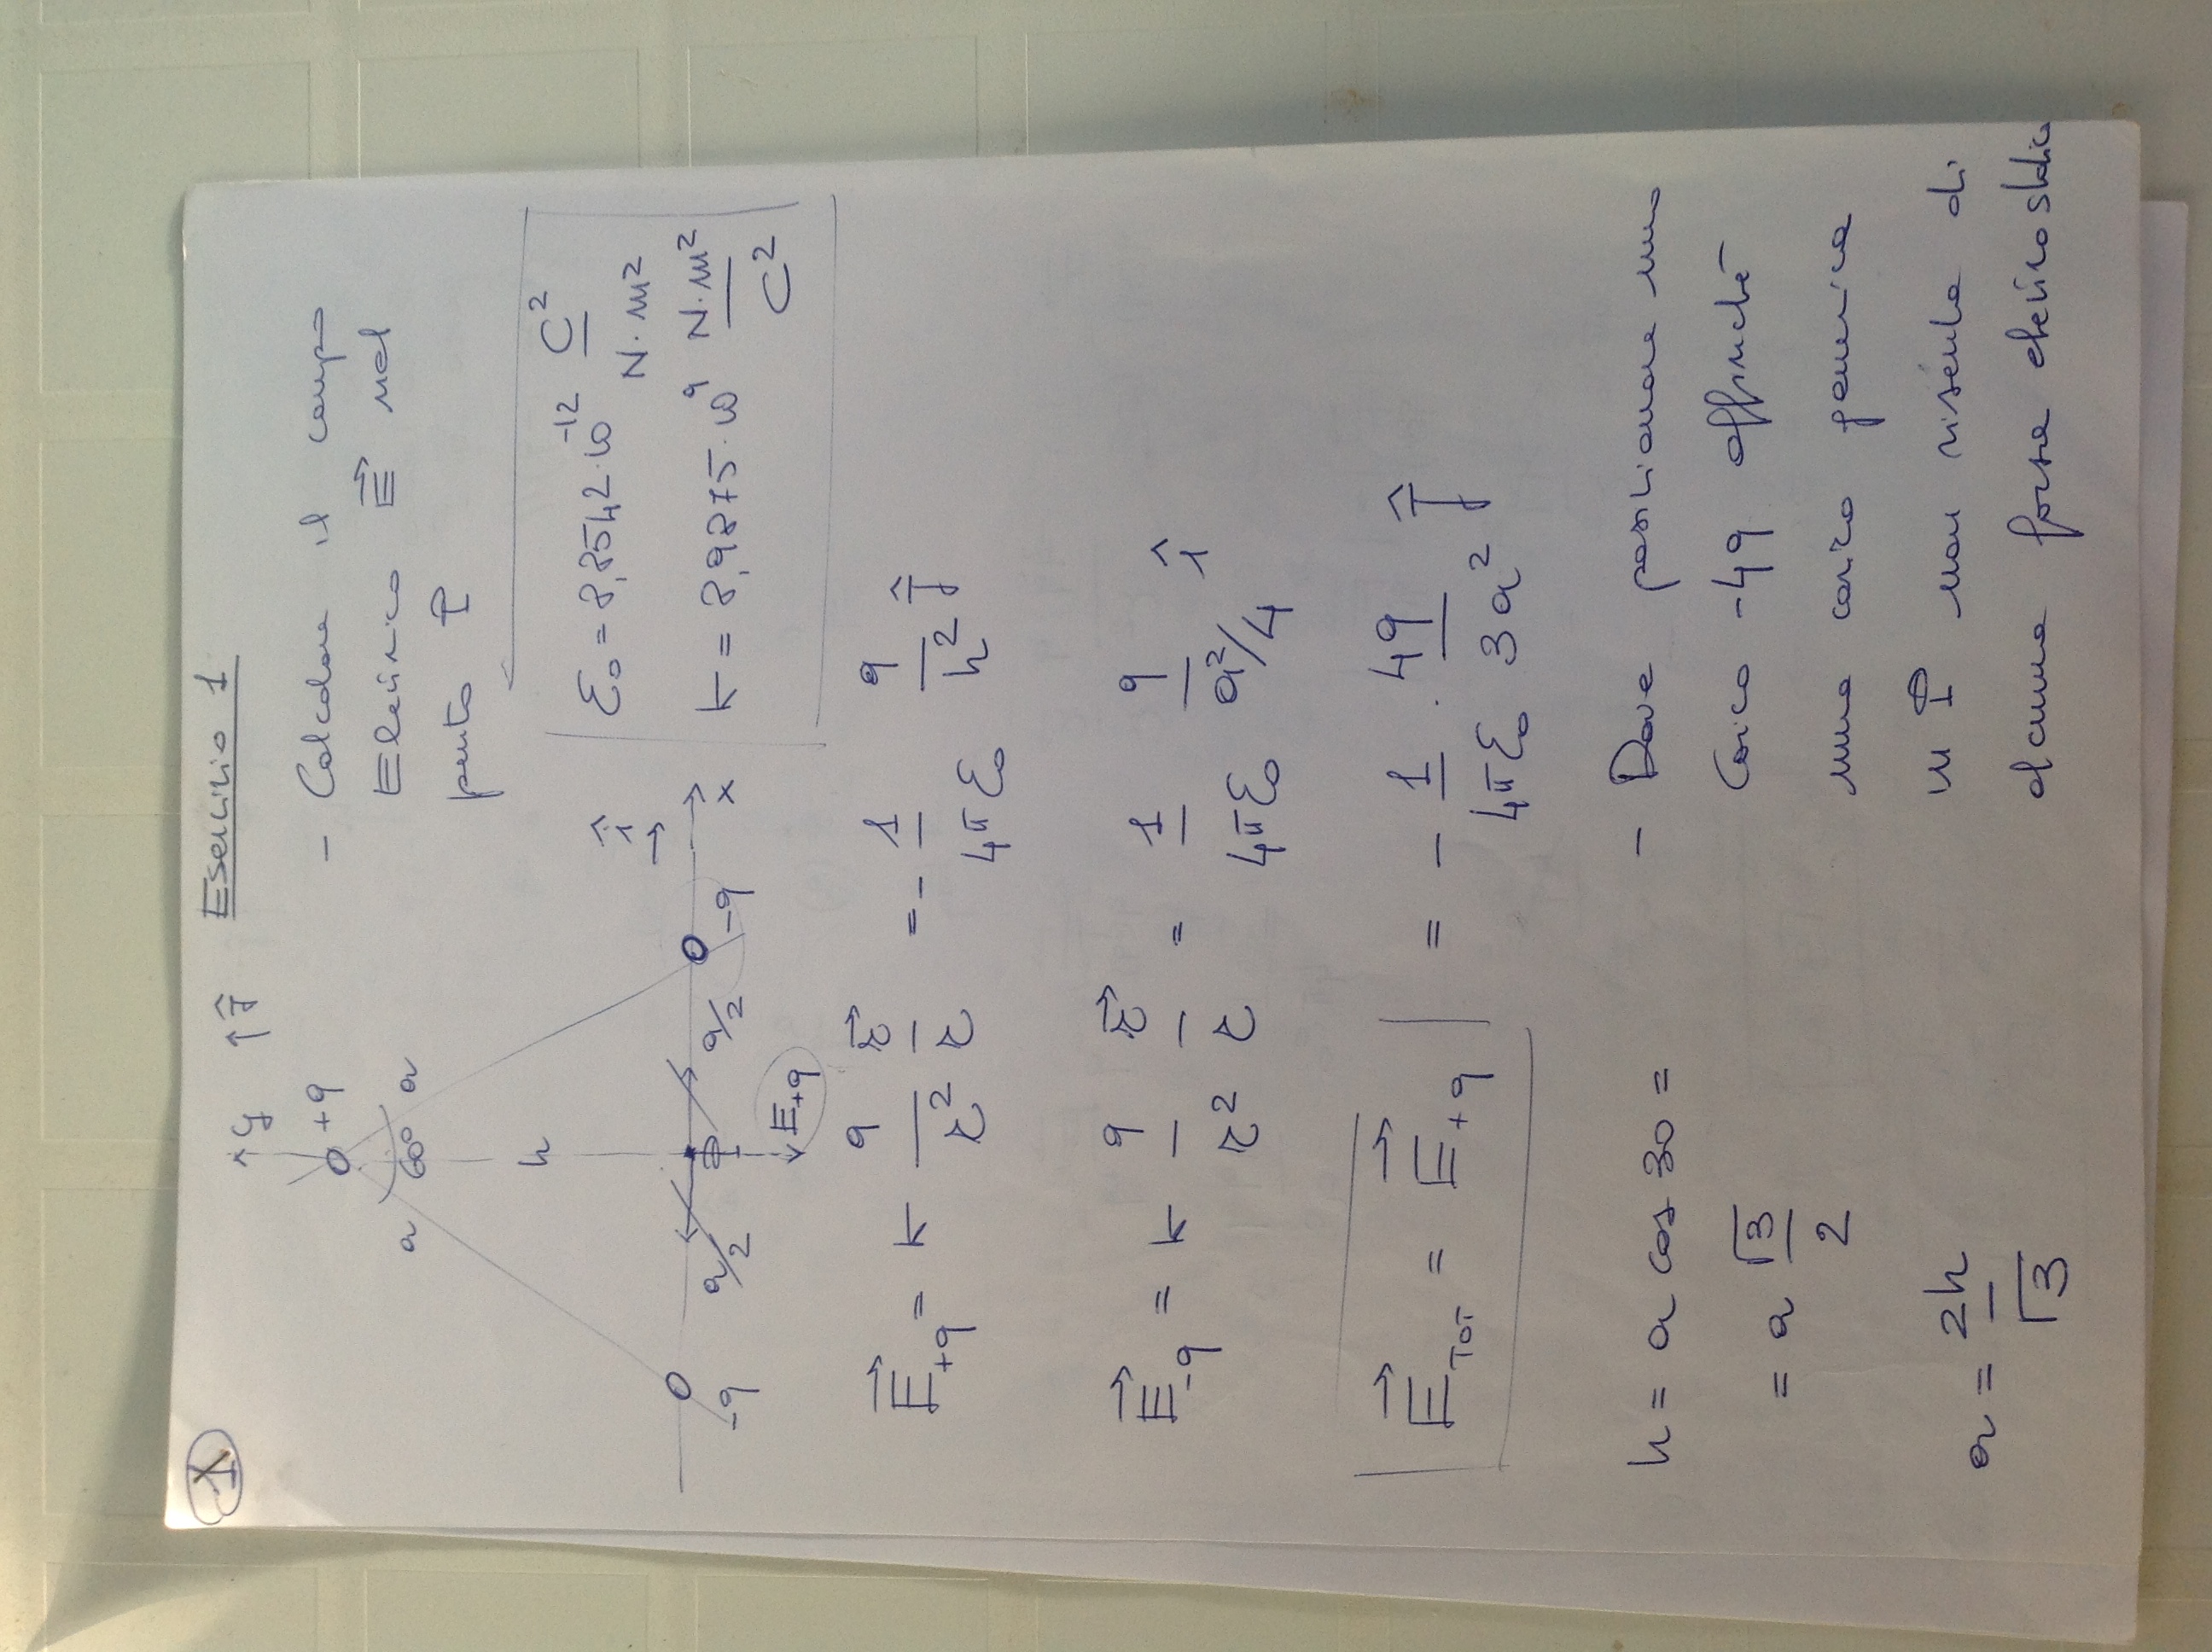 1
Esercizio 1
y ĵ
+q
a 60° a
h
î
-q a/2 P a/2 -q x
E+q
- Calcolare il campo
Elettrico E⃗ nel
punto P
ε₀ = 8,8542·10⁻¹² C²/N·m²
K = 8,9875·10⁹ N·m²/C²
E⃗+q = K q/r² r⃗/r = - 1/4πε₀ q/h² ĵ
E⃗-q = K q/r² r⃗/r = 1/4πε₀ q/a²/4 î
E⃗TOT = E⃗+q = - 1/4πε₀ · 4q/3a² ĵ
h = a cos 30 =
= a √3/2
a = 2h/√3
- Dove posizionare una
carica -4q affinché
una carica generica
in P non risenta di
alcuna forza elettrostatica